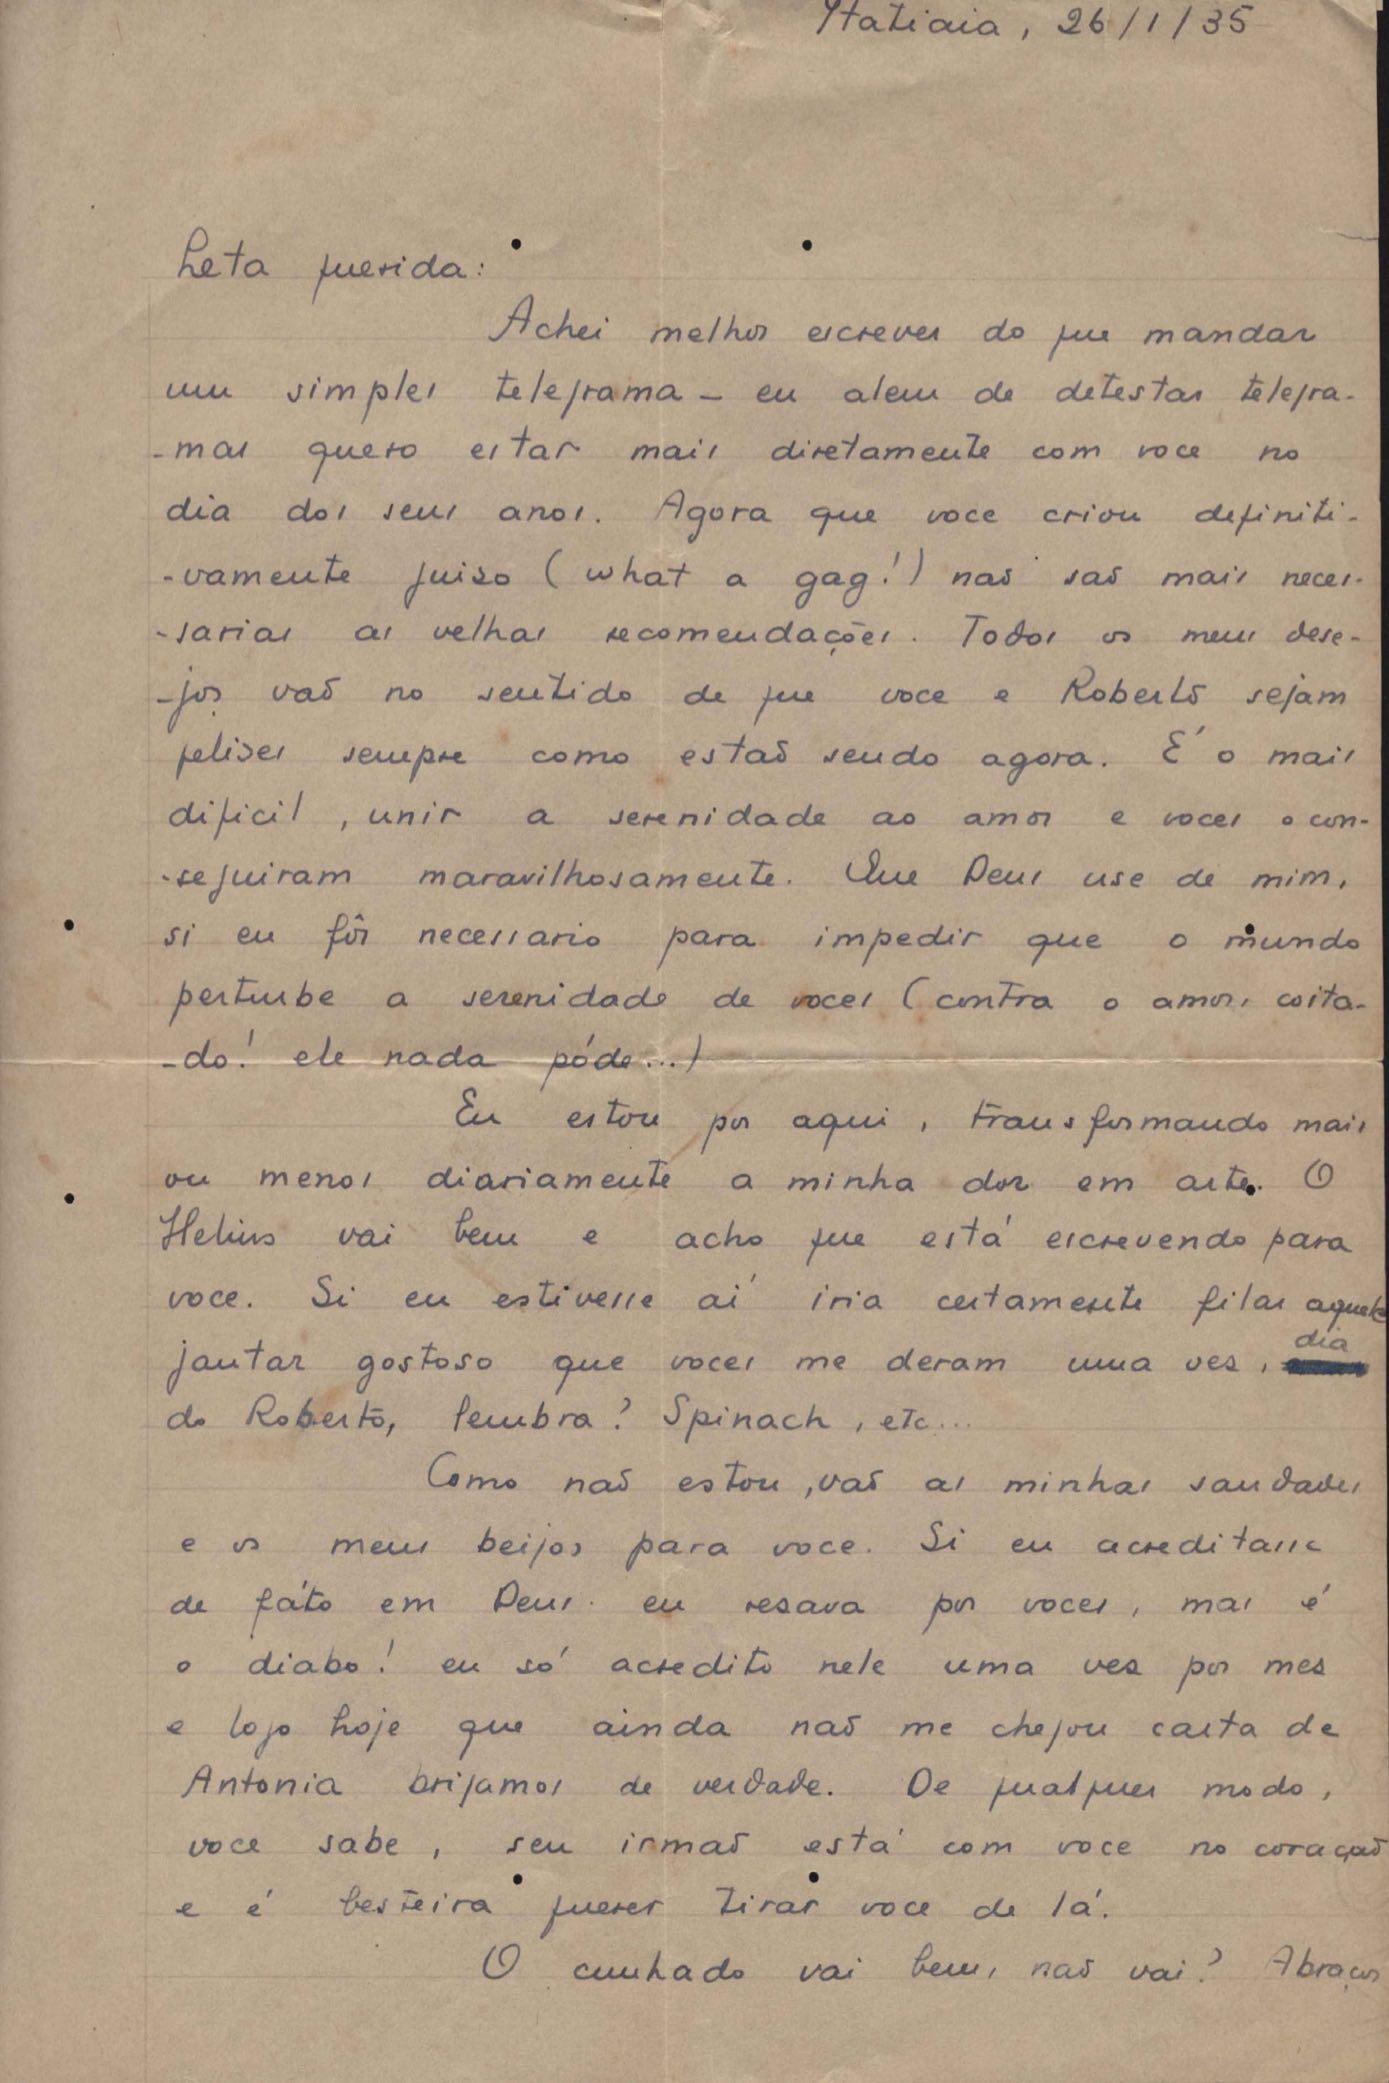 Itatiaia, 26/1/35
Leta querida:
Achei melhor escrever do que mandar
um simples telegrama - eu alem de detestar telegra-
-mas quero estar mais diretamente com voce no
dia dos seus anos. Agora que voce criou definiti-
-vamente juizo (what a gag!) naõ saõ mais neces-
-sarias as velhas recomendações. Todos os meus dese-
-jos vaõ no sentido de que voce e Roberto sejam
felizes sempre como estaõ sendo agora. É o mais
dificil, unir a serenidade ao amor e voces o con-
-seguiram maravilhosamente. Que Deus use de mim,
si eu fôr necessario para impedir que o mundo
perturbe a serenidade de voces (contra o amor, coita-
-do! ele nada póde...)
Eu estou por aqui, transformando mais
ou menos diariamente a minha dor em arte. O
Helius vai bem e acho que está escrevendo para
voce. Si eu estivesse aí iria certamente filar aquele
jantar gostoso que voces me deram uma vez, dia
do Roberto, lembra? Spinach, etc...
Como naõ estou, vaõ as minhas saudades
e os meus beijos para voce. Si eu acreditasse
de fáto em Deus eu resava por voces, mas é
o diabo! eu só acredito nele uma vez por mez
e logo hoje que ainda naõ me chegou carta de
Antonia brigamos de verdade. De qualquer modo,
voce sabe, seu irmaõ está com voce no coraçaõ
e é besteira querer tirar voce de lá.
O cunhado vai bem, naõ vai? Abraços